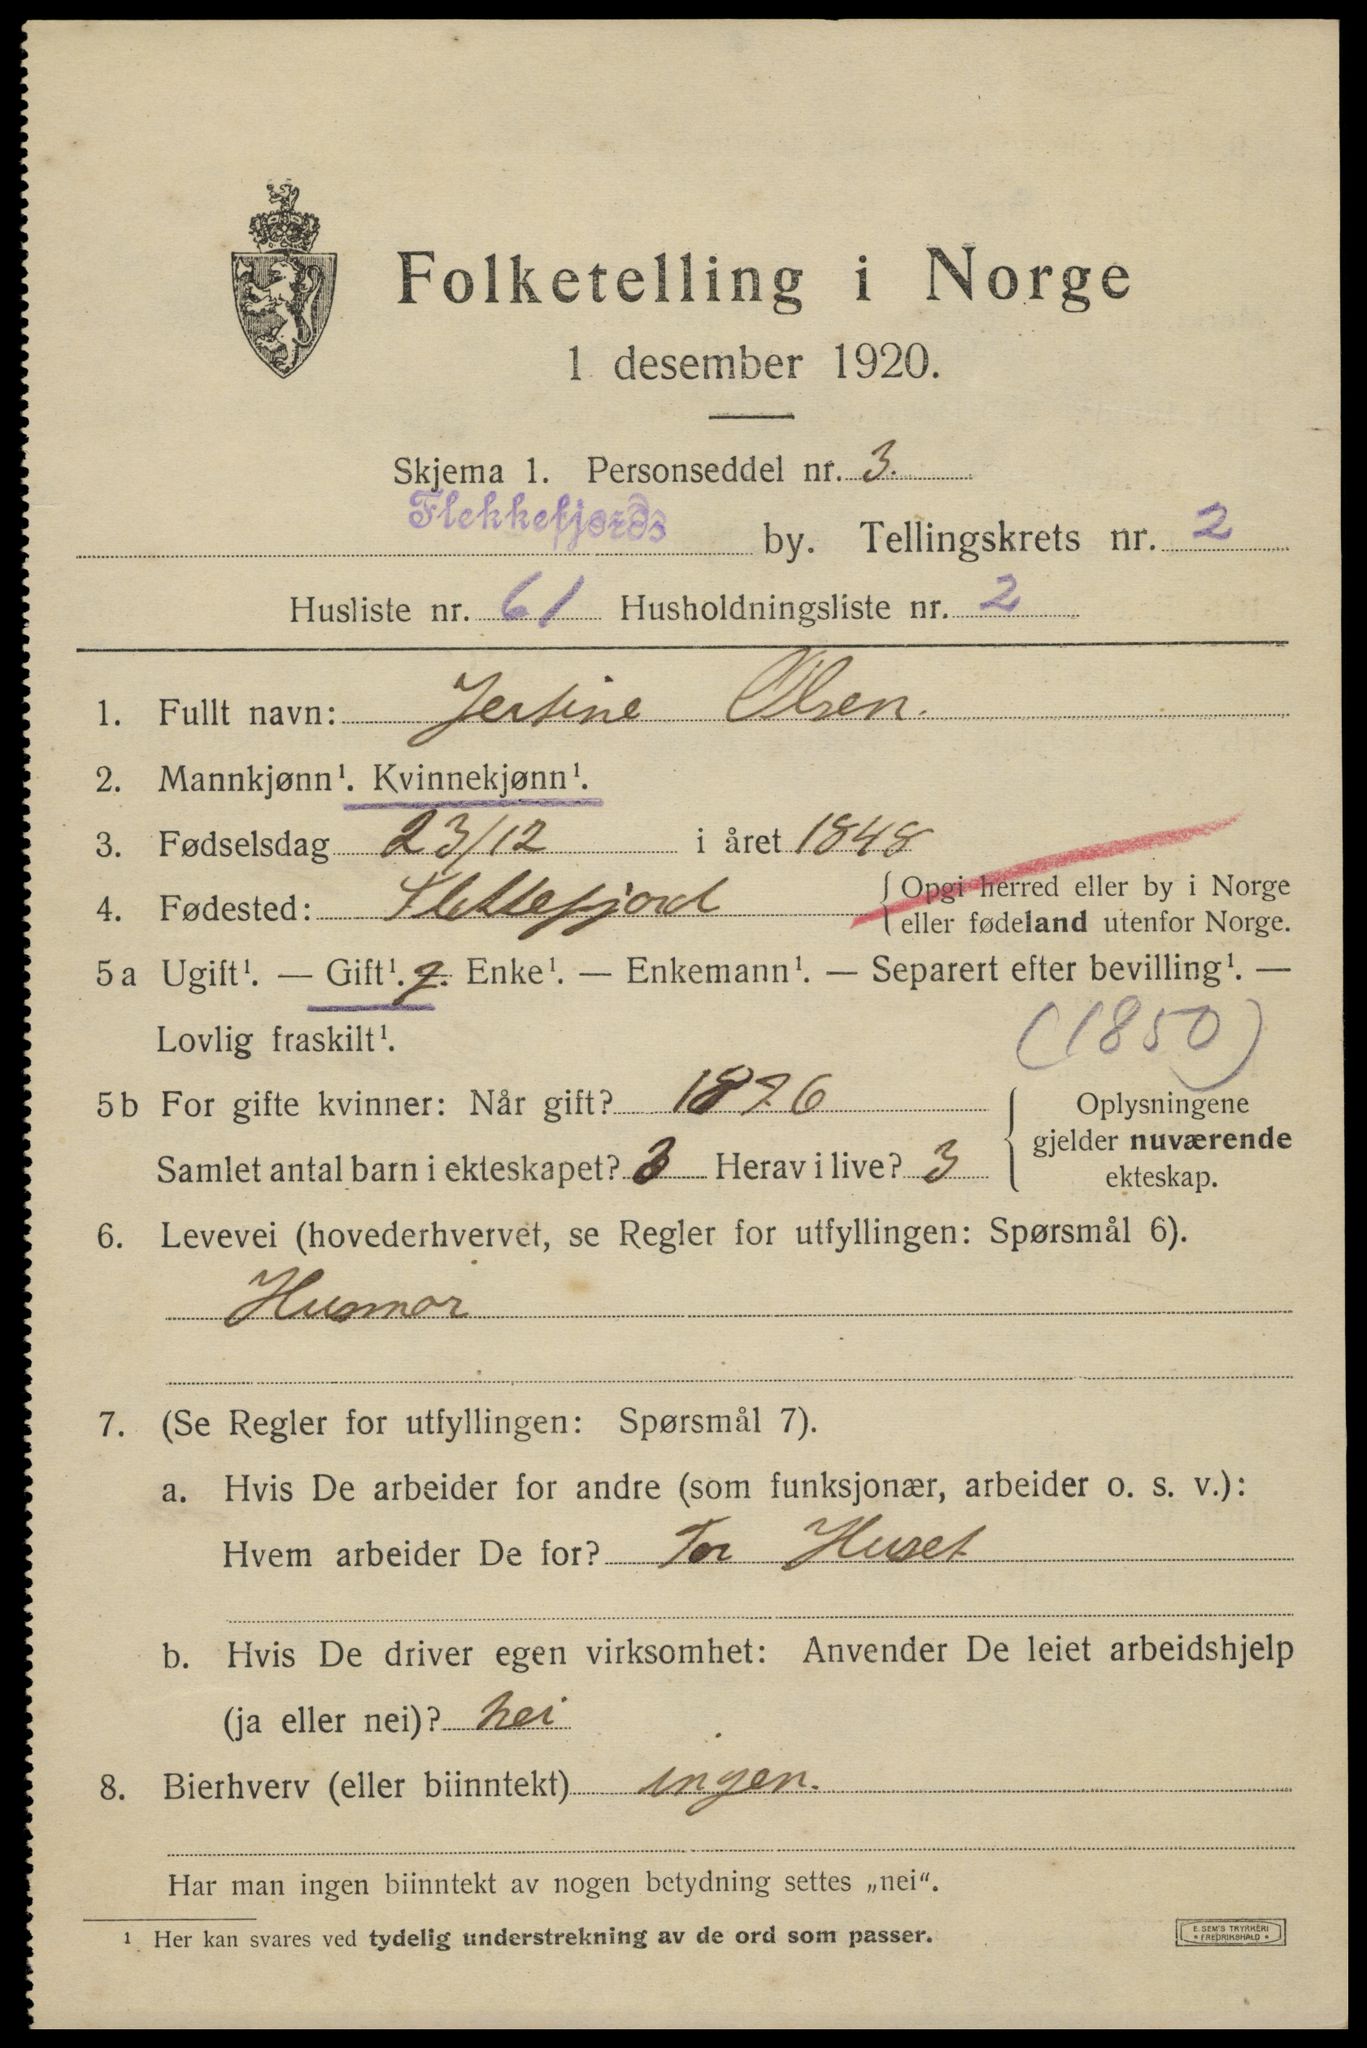 Folketelling i Norge
1 desember 1920.
Skjema 1. Personseddel nr. 3.
Flekkefjords by. Tellingskrets nr. 2
Husliste nr. 61 Husholdningsliste nr. 2
1. Fullt navn: Jertine Olsen.
2. Mannkjønn¹. Kvinnekjønn¹.
3. Fødselsdag 23/12 i året 1848
4. Fødested: Flekkefjord { Opgi herred eller by i Norge
eller fødeland utenfor Norge.
5a Ugift¹. — Gift¹. g. Enke¹. — Enkemann¹. — Separert efter bevilling¹. —
Lovlig fraskilt¹.
(1850)
5b For gifte kvinner: Når gift? 1876 { Oplysningene
gjelder nuværende
ekteskap.
Samlet antal barn i ekteskapet? 3 Herav i live? 3
6. Levevei (hovederhvervet, se Regler for utfyllingen: Spørsmål 6).
Husmor
7. (Se Regler for utfyllingen: Spørsmål 7).
a. Hvis De arbeider for andre (som funksjonær, arbeider o. s. v.):
Hvem arbeider De for? For Huset
b. Hvis De driver egen virksomhet: Anvender De leiet arbeidshjelp
(ja eller nei)? nei
8. Bierhverv (eller biinntekt) ingen.
Har man ingen biinntekt av nogen betydning settes „nei“.
¹ Her kan svares ved tydelig understrekning av de ord som passer.
E. SEM'S TRYKKERI
* FREDRIKSHALD *